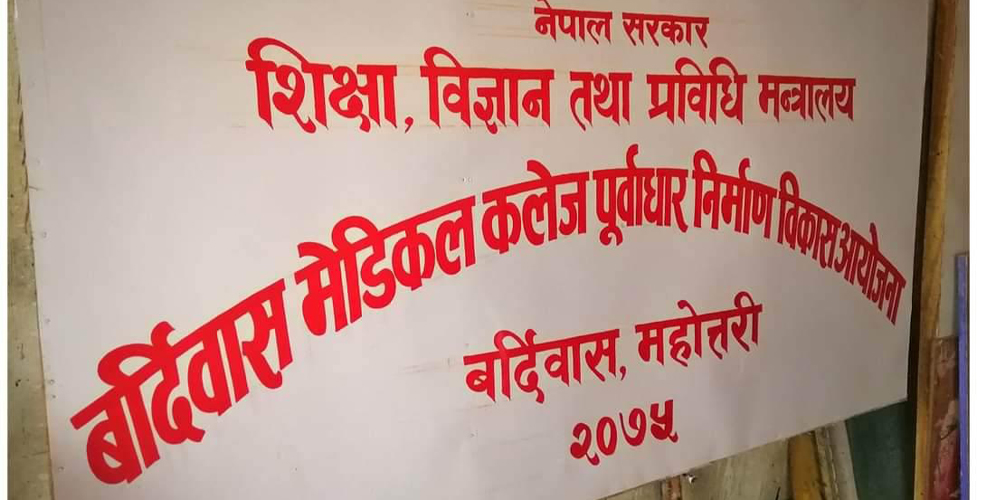 नेपाल सरकार
शिक्षा, विज्ञान तथा प्रविधि मन्त्रालय
बर्दिवास मेडिकल कलेज पूर्वाधार निर्माण विकास आयोजना
बर्दिवास, महोत्तरी
२०७५